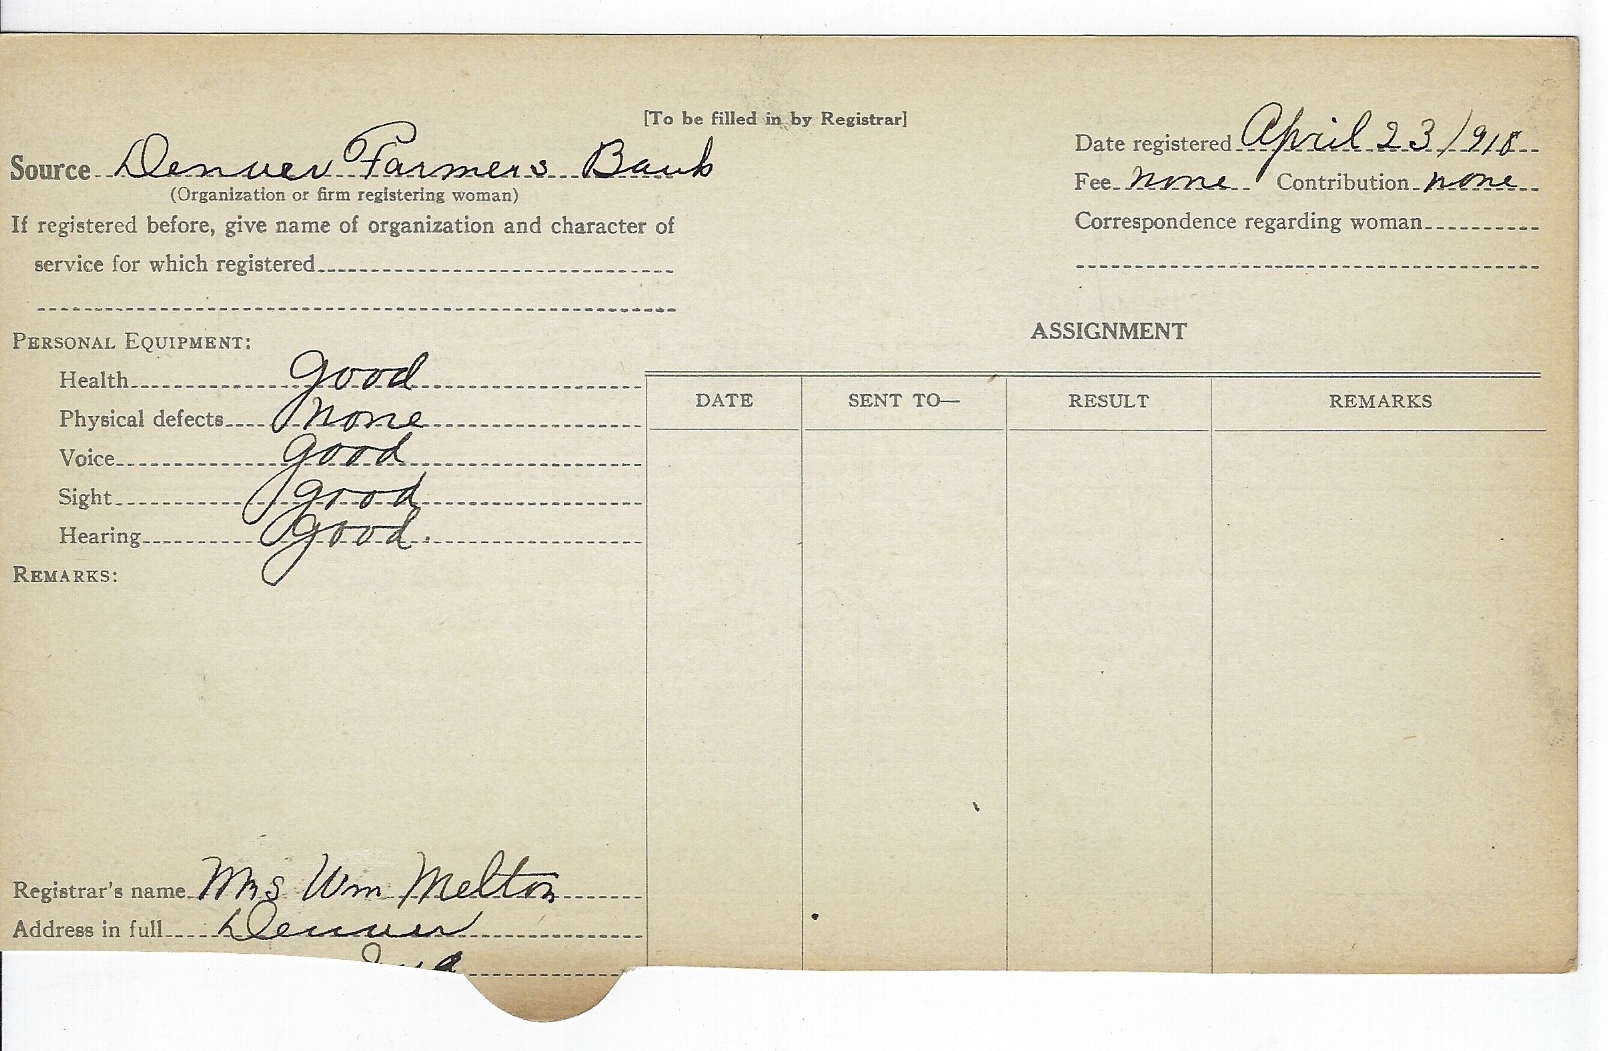 [To be filled in by Registrar]
Source Denver Farmers Bank
(Organization or firm registering woman)
If registered before, give name of organization and character of
service for which registered
Date registered April 23/918
Fee none Contribution none
Correspondence regarding woman
PERSONAL EQUIPMENT:
Health good
Physical defects none
Voice good
Sight good
Hearing good.
REMARKS:
Registrar's name Mrs Wm Melton
Address in full Denver
Ind
ASSIGNMENT
DATE SENT TO— RESULT REMARKS